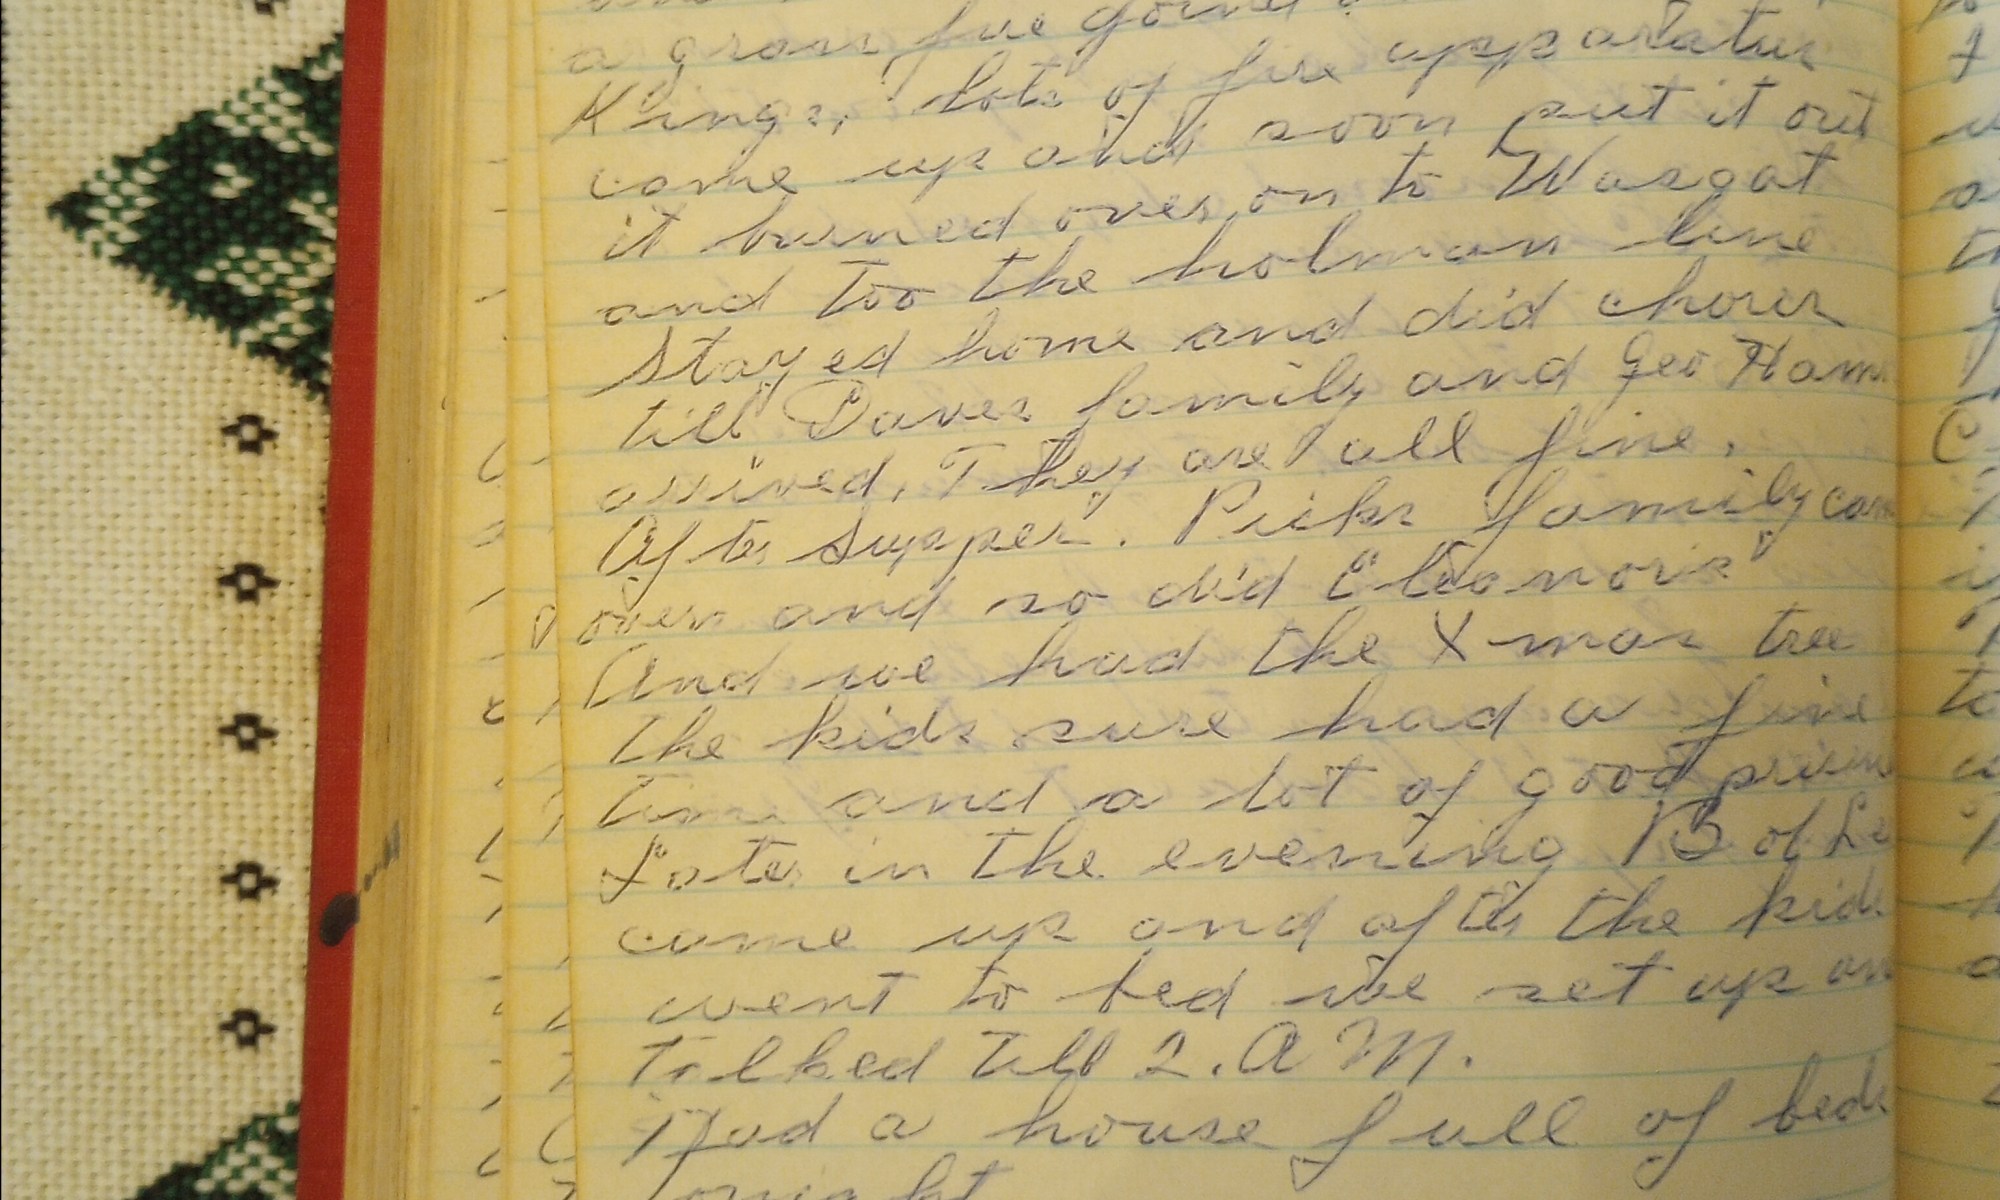 a grass fire
Kings, lots of fire apparatus
come up and soon put it out
it burned over on to Wasgat
and too the holman line
Stayed home and did chours
till Daves family and Geo Ham
arrived, They are all fine.
After supper. family cam
over and so did Eleanors
And we had the X-mas tree
the kids sure had a fine
time and a lot of good
Later in the evening B of Le
come up and after the kids
went to bed we set up an
talked till 2. A M.
Had a house full of beds
tonight